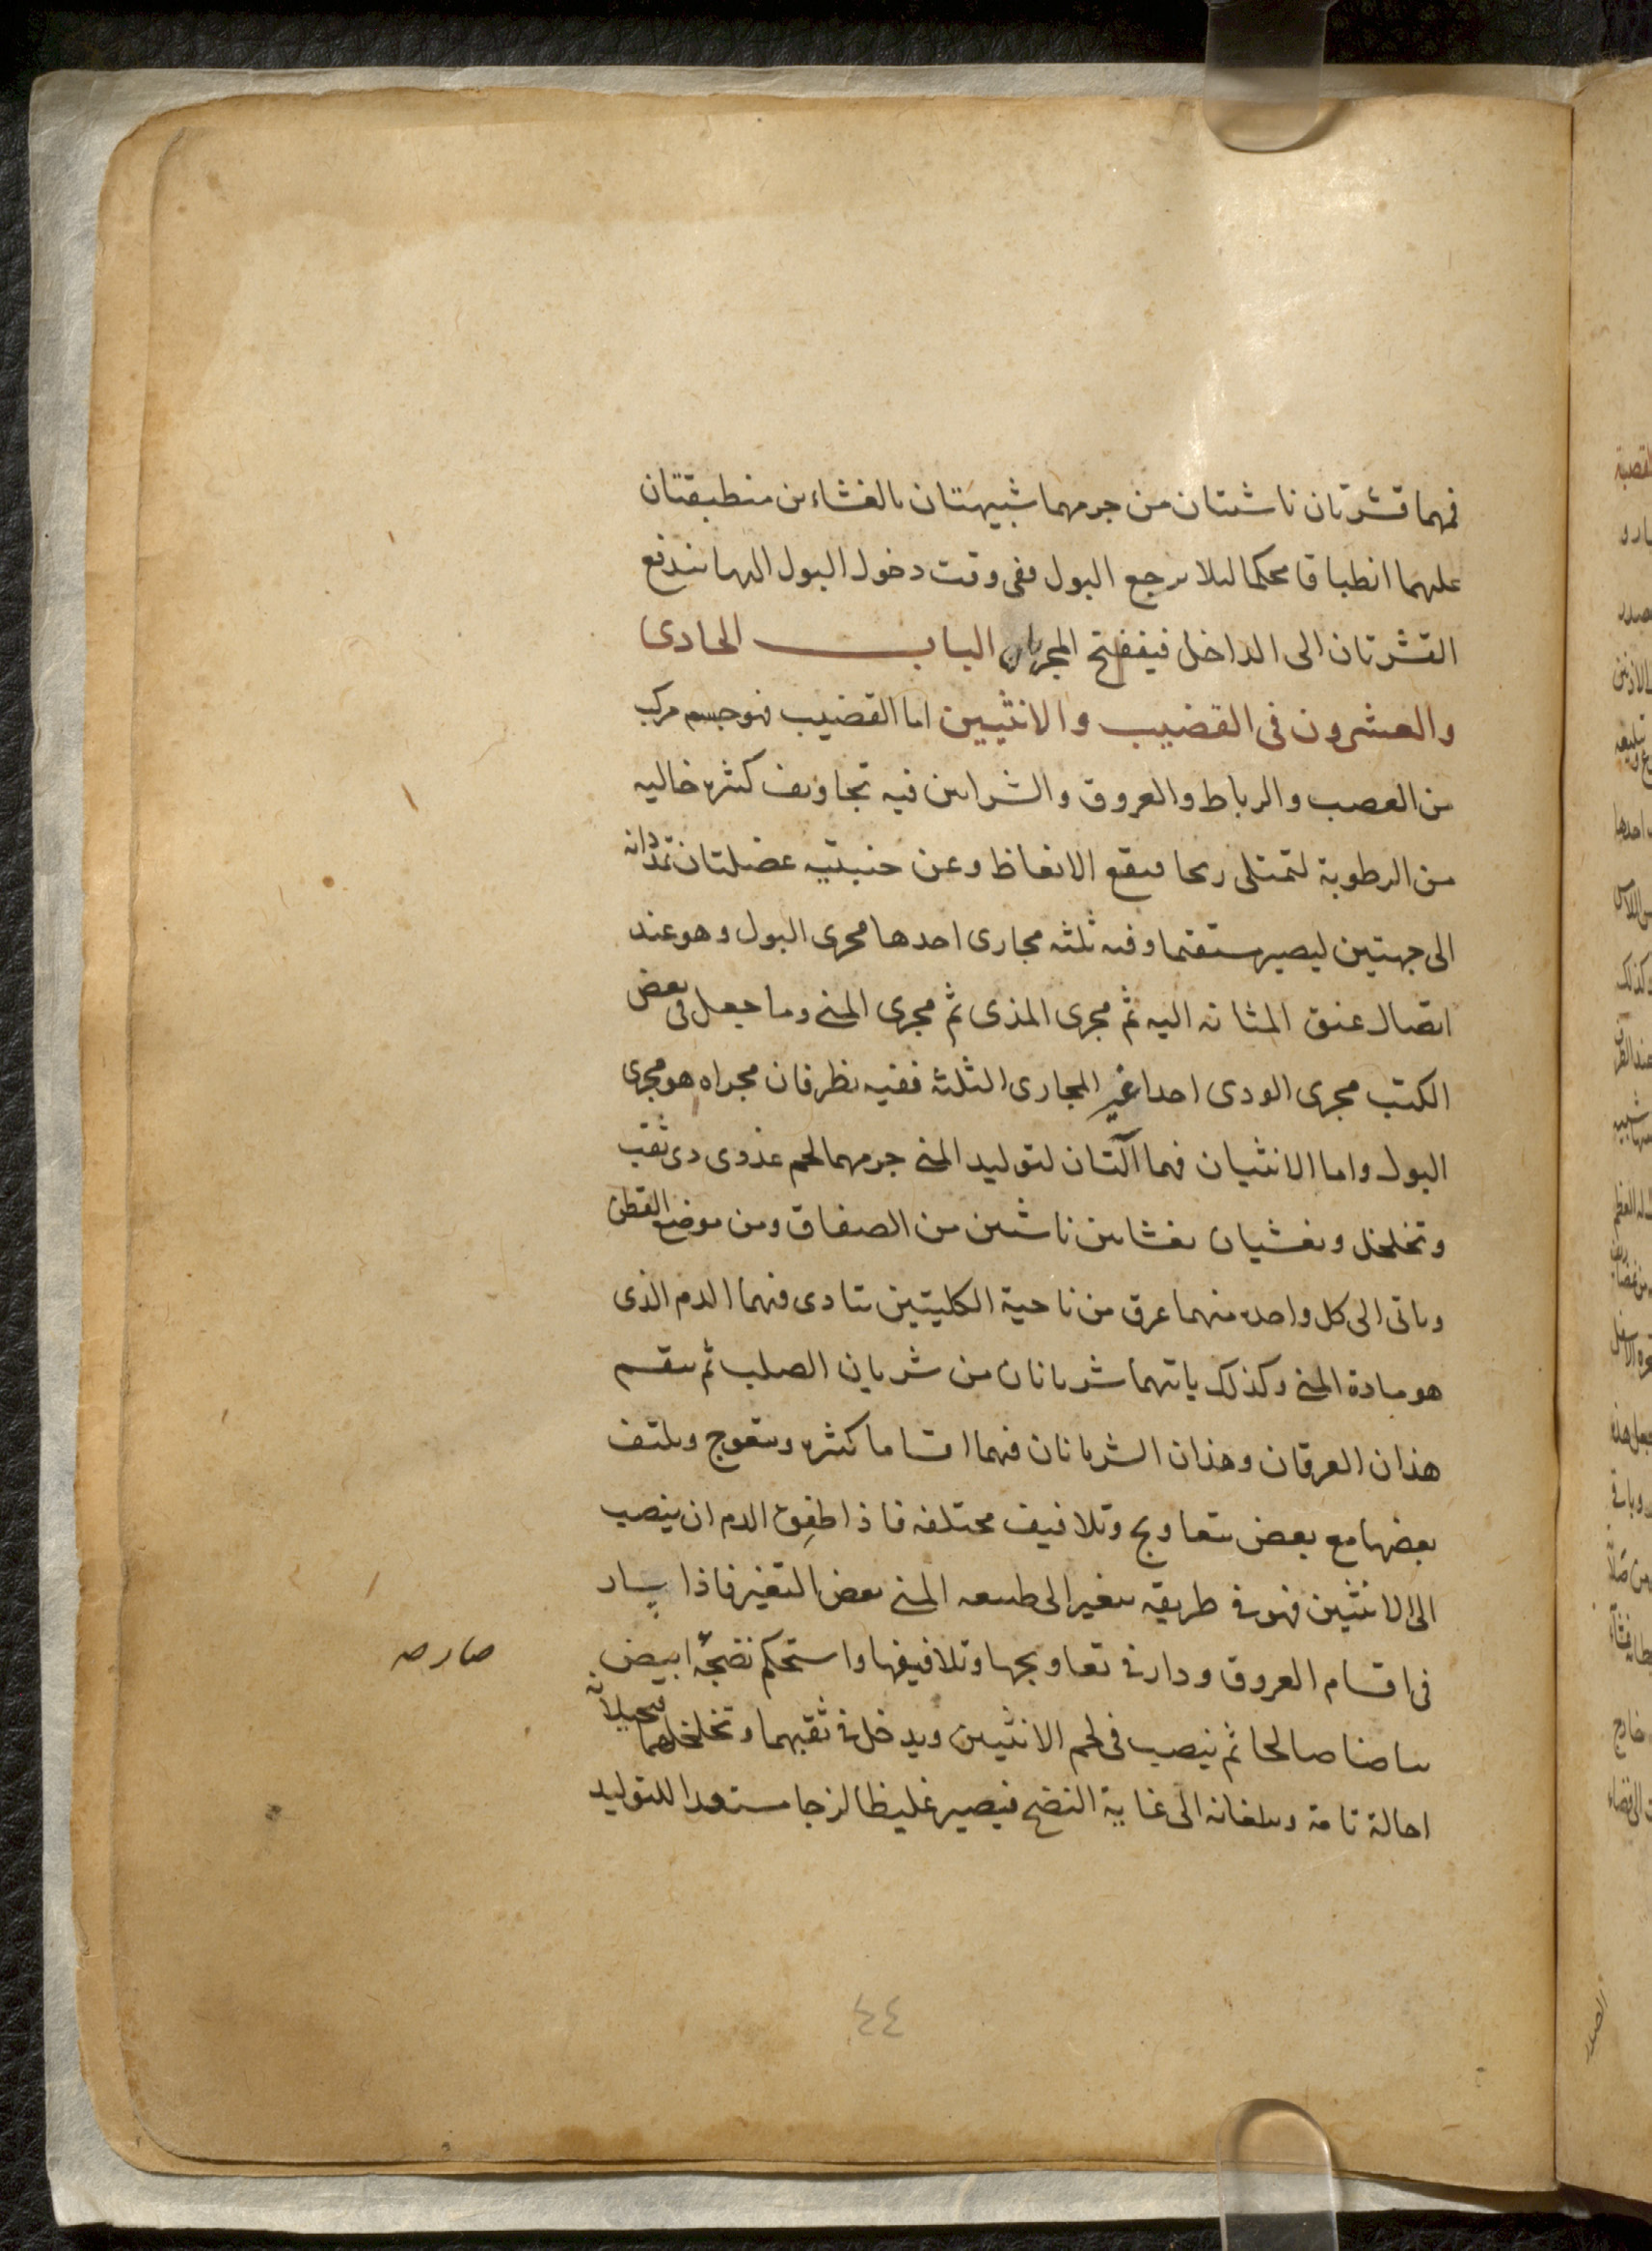 فهما قشرتان ناشئتان من جرمهما شبيهتان بالغشاءين منطبقتان
عليهما انطباقا محكما لئلا يرجع البول ففى وقت دخول البول اليها تندفع
القشرتان الى الداخل فينفتح المجريان الباب الحادى
والعشرون فى القضيب والانثيين اما القضيب فهو جسم مركب
من العصب والرباط والعروق والشرايين فيه تجاويف كثيره خاليه
من الرطوبة لتمتلى ريحا فيقع الانعاظ وعن جنبتيه عضلتان تمدانه
الى جهتين ليصير مستقيما وفيه ثلثه مجارى احدها مجرى البول وهو عند
اتصال عنق المثانه اليه ثم مجرى المذى ثم مجرى المنى وما جعل فى بعض
الكتب مجرى الودى احدا غير المجارى الثلثه ففيه نظر فان مجراه هو مجرى
البول واما الانثيان فهما آلتان لتوليد المنى جرمهما لحم غذوى ذى ثقب
وتخلخل ويغشيان بغشائين ناشئين من الصفاق ومن موضع القطن
وياتى الى كل واحده منهما عرق من ناحية الكليتين يتادى فيهما الدم الذى
هو مادة المنى وكذلك ياتيهما شريانان من شريان الصلب ثم ينقسم
هذان العرقان وهذان الشريانان فيهما اقساما كثيره ويتعوج ويلتف
بعضها مع بعض بتعاويج وتلافيف مختلفه فاذا طفِق الدم ان ينصب
الى الانثيين فهو فى طريقه يتغير الى طبيعه المنى بعض التغير فاذا سار
فى اقسام العروق ودار فى تعاويجها وتلافيفها واستحكم نضجه ابيض
صار صـ
بياضا صالحا ثم ينصب فى لحم الانثيين ويدخل فى ثقبهما وتخلخلهما فيحيلانه
احالة تامة ويبلغانه الى غاية النضج فيصير غليظا لزجا مستعدا للتوليد
٤٤